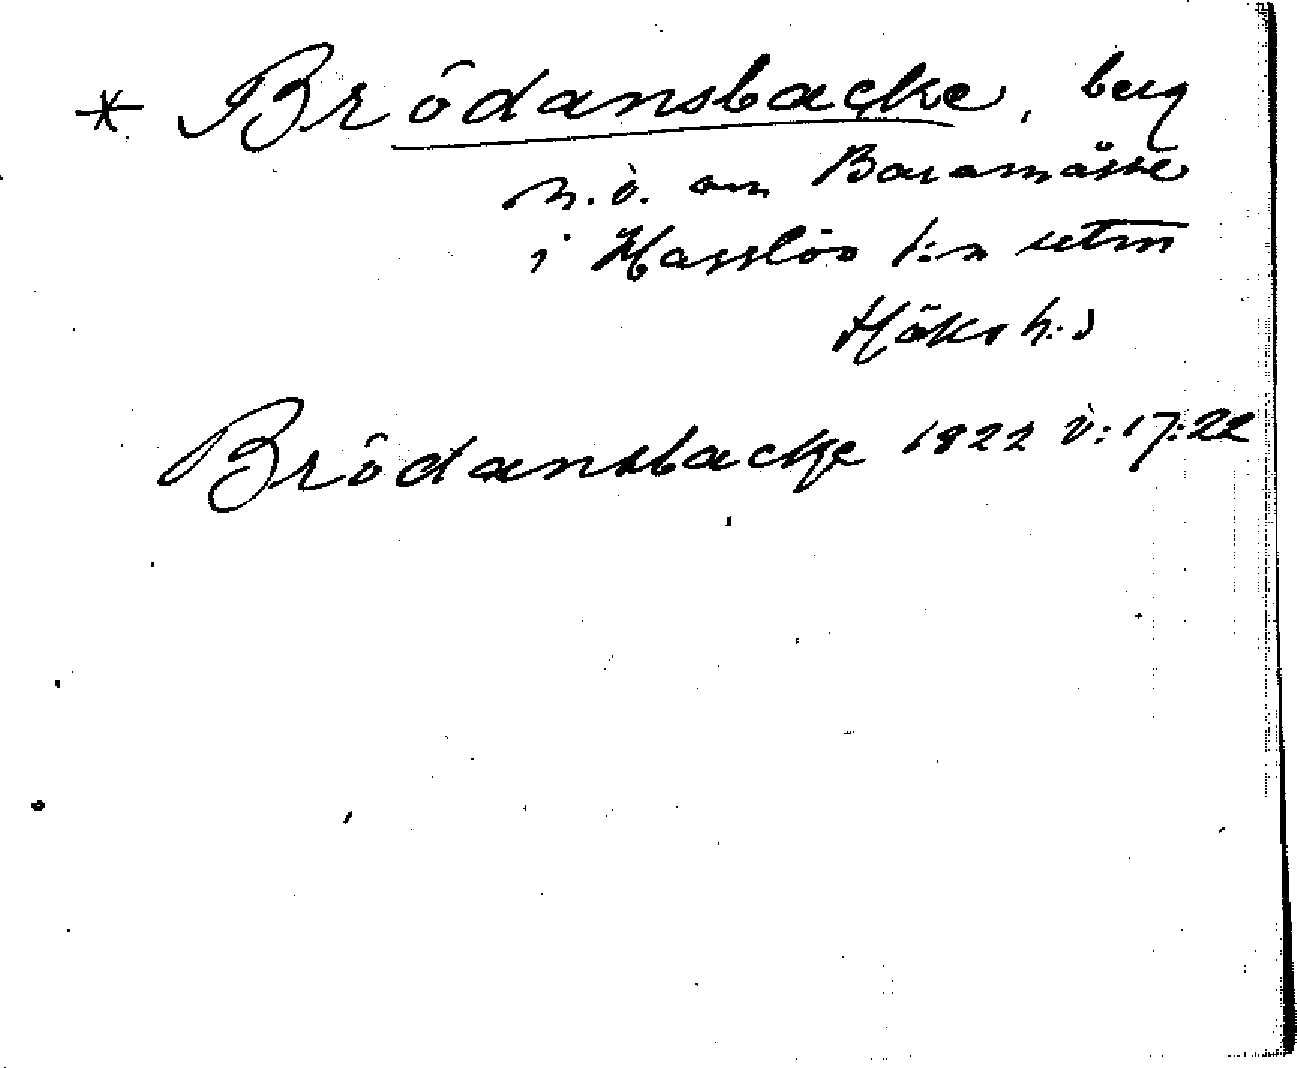 * Brödansbacke, berg
n.ö. om Baramåsse
i Hasslöv s:n utm
Höks h:d
Brödansbacke 1822 v:17:22